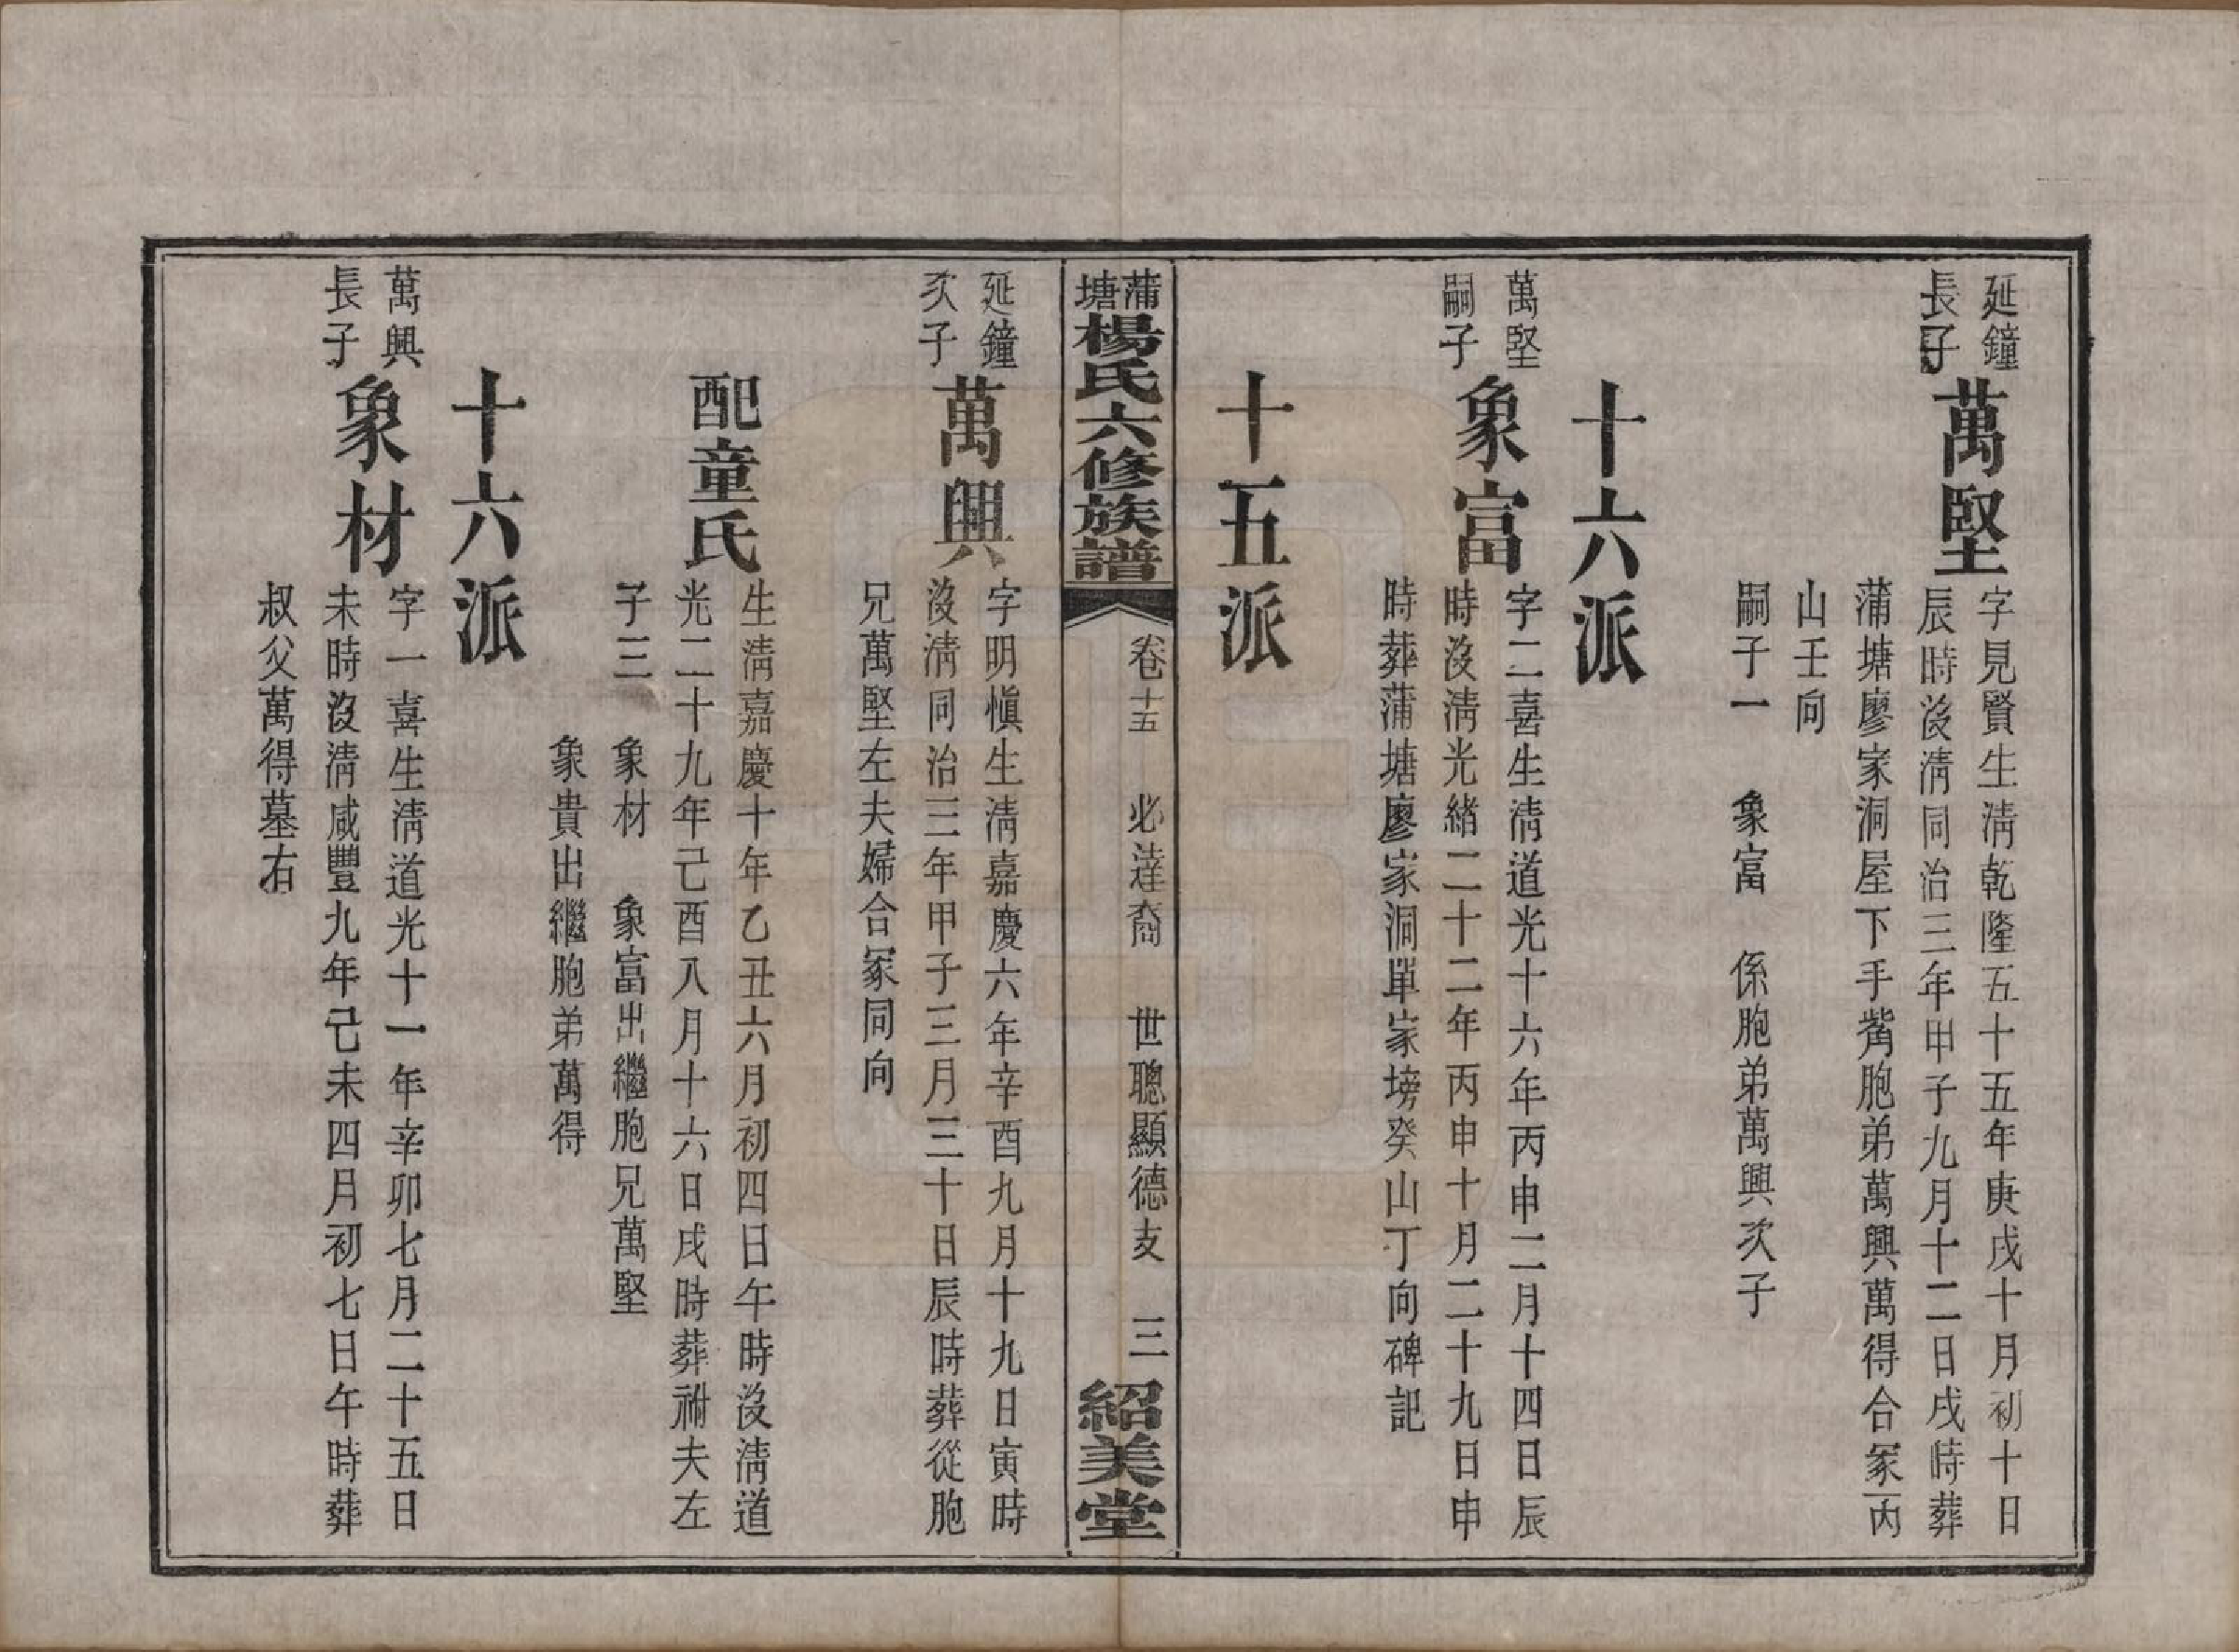 延鐘
長子
萬堅
字見賢生淸乾隆五十五年庚戌十月初十日
辰時沒淸同治三年甲子九月十二日戌時葬
蒲塘廖家洞屋下手觜胞弟萬興萬得合冢丙
山壬向
嗣子一　象富　係胞弟萬興次子
十六派
萬堅
嗣子
象富
字二喜生淸道光十六年丙申二月十四日辰
時沒淸光緒二十二年丙申十月二十九日申
時葬蒲塘廖家洞單家塝癸山丁向碑記
十五派
蒲塘楊氏六修族譜
卷十五　必達裔　世聰顯德支　三
紹美堂
延鐘
次子
萬興
字明愼生淸嘉慶六年辛酉九月十九日寅時
沒淸同治三年甲子三月三十日辰時葬從胞
兄萬堅左夫婦合冢同向
配童氏
生淸嘉慶十年乙丑六月初四日午時沒淸道
光二十九年己酉八月十六日戌時葬祔夫左
子三　象材　象富出繼胞兄萬堅
象貴出繼胞弟萬得
十六派
萬興
長子
象材
字一喜生淸道光十一年辛卯七月二十五日
未時沒淸咸豐九年己未四月初七日午時葬
叔父萬得墓右